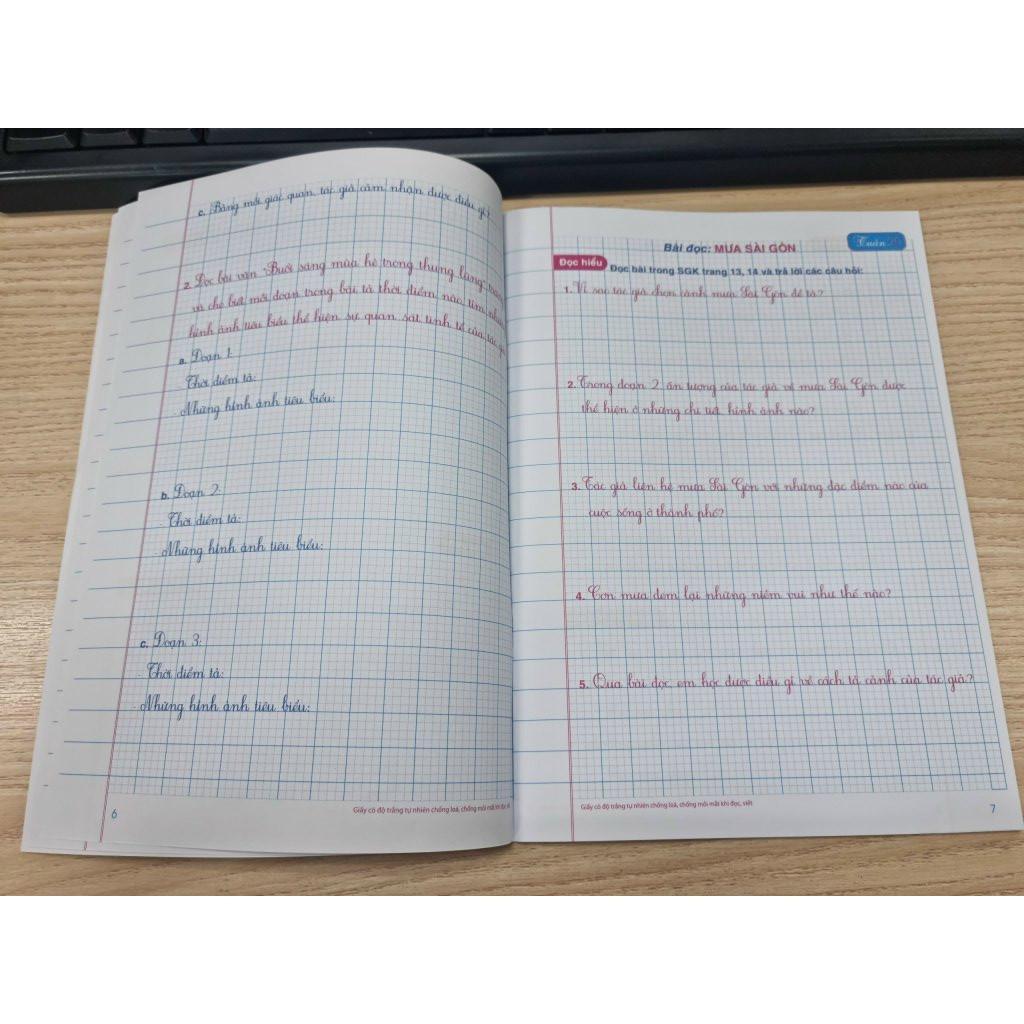 c. Bằng mỗi giác quan, tác giả cảm nhận được điều gì?
2. Đọc bài văn "Buổi sáng mùa hè trong thung lũng"
và cho biết mỗi đoạn trong bài tả thời điểm nào, tìm
hình ảnh tiêu biểu thể hiện sự quan sát tinh tế của tác giả
a. Đoạn 1:
- Thời điểm tả:
- Những hình ảnh tiêu biểu:
b. Đoạn 2:
- Thời điểm tả:
- Những hình ảnh tiêu biểu:
c. Đoạn 3:
- Thời điểm tả:
- Những hình ảnh tiêu biểu:
6
Giấy có độ trắng tự nhiên chống loá, chống mỏi mắt khi đọc
Tuần
Bài đọc: MƯA SÀI GÒN
Đọc hiểu Đọc bài trong SGK trang 13, 14 và trả lời các câu hỏi:
1. Vì sao tác giả chọn cảnh mưa Sài Gòn để tả?
2. Trong đoạn 2, ấn tượng của tác giả về mưa Sài Gòn được
thể hiện ở những chi tiết, hình ảnh nào?
3. Tác giả liên hệ mưa Sài Gòn với những đặc điểm nào của
cuộc sống ở thành phố?
4. Cơn mưa đem lại những niềm vui như thế nào?
5. Qua bài đọc, em học được điều gì về cách tả cảnh của tác giả?
Giấy có độ trắng tự nhiên chống loá, chống mỏi mắt khi đọc, viết
7